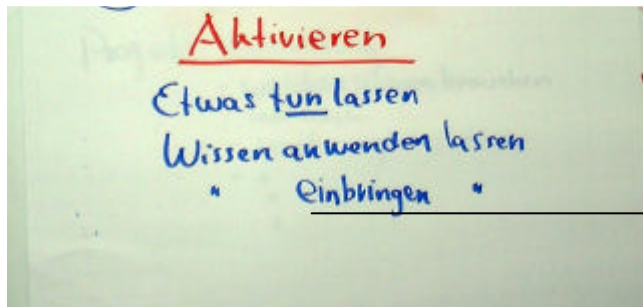 Aktivieren
Etwas tun lassen
Wissen anwenden lassen
" einbringen "